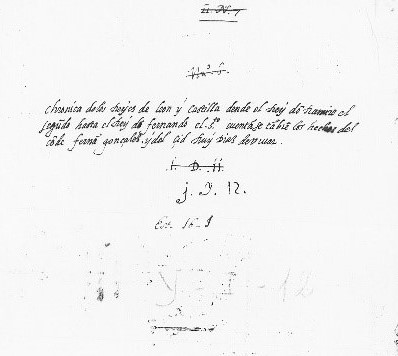 ii. N. 7
Chronica de los Reyes de leon y Castilla desde el Rey dõ Ramiro el
segũdo hasta el Rey dõ fernando el .3º. cuentãse tãbiẽ los hechos del
cõde fernã gonçales. y del Cid Ruy Dias de viuar.
i. D. ii
j. Y. 12.
Est. 16. 1
Y - I - 12